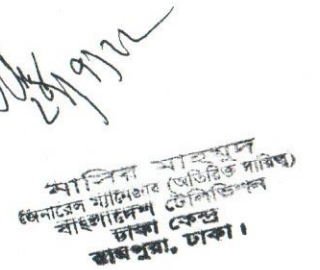 ২৫/৭/২২
মাহমুদ
জেনারেল ম্যানেজার (অতিরিক্ত দায়িত্ব)
বাংলাদেশ টেলিভিশন
ঢাকা কেন্দ্র
রামপুরা, ঢাকা।